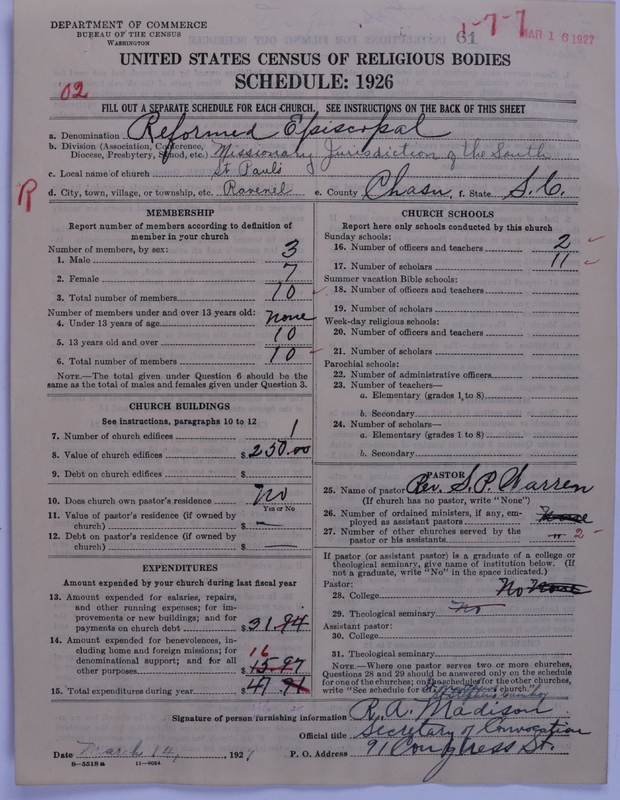 DEPARTMENT OF COMMERCE
BUREAU OF THE CENSUS
WASHINGTON
1-7-7
61
MAR 16 1927
UNITED STATES CENSUS OF RELIGIOUS BODIES
SCHEDULE: 1926
02
FILL OUT A SEPARATE SCHEDULE FOR EACH CHURCH, SEE INSTRUCTIONS ON THE BACK OF THIS SHEET
a. Denomination Reformed Episcopal
b. Division (Association, Conference, Diocese, Presbytery, Synod, etc.) Missionary Jurisdiction of the South
c. Local name of church St Pauls
R
d. City, town, village, or township, etc. Ravenel e. County Chasn, f. State S.C.
MEMBERSHIP
Report number of members according to definition of
member in your church
Number of members, by sex:
1. Male 3
2. Female 7
3. Total number of members 10
Number of members under and over 13 years old:
4. Under 13 years of age none
5. 13 years old and over 10
6. Total number of members 10
NOTE.—The total given under Question 6 should be the
same as the total of males and females given under Question 3.
CHURCH BUILDINGS
See instructions, paragraphs 10 to 12
7. Number of church edifices 1
8. Value of church edifices $ 250.00
9. Debt on church edifices $
10. Does church own pastor's residence No
Yes or No
11. Value of pastor's residence (if owned by
church) $ —
12. Debt on pastor's residence (if owned by
church) $ —
EXPENDITURES
Amount expended by your church during last fiscal year
13. Amount expended for salaries, repairs,
and other running expenses; for im-
provements or new buildings; and for
payments on church debt $ 31.94
14. Amount expended for benevolences, in-
cluding home and foreign missions; for
denominational support; and for all
other purposes $ 15.97
16
15. Total expenditures during year $ 47 91
CHURCH SCHOOLS
Report here only schools conducted by this church
Sunday schools:
16. Number of officers and teachers 2
17. Number of scholars 11
Summer vacation Bible schools:
18. Number of officers and teachers
19. Number of scholars
Week-day religious schools:
20. Number of officers and teachers
21. Number of scholars
Parochial schools:
22. Number of administrative officers
23. Number of teachers—
a. Elementary (grades 1 to 8)
b. Secondary
24. Number of scholars—
a. Elementary (grades 1 to 8)
b. Secondary
PASTOR
25. Name of pastor Rev. S. P. Warren
(If church has no pastor, write "None")
26. Number of ordained ministers, if any, em-
ployed as assistant pastors None
27. Number of other churches served by the
pastor or his assistants " 2
If pastor (or assistant pastor) is a graduate of a college or
theological seminary, give name of institution below. (If
not a graduate, write "No" in the space indicated.)
Pastor:
28. College No None
29. Theological seminary No
Assistant pastor:
30. College
31. Theological seminary
NOTE.—Where one pastor serves two or more churches,
Questions 28 and 29 should be answered only on the schedule
for one of the churches; on the schedules for the other churches,
write "See schedule for church."
Signature of person furnishing information R. A. Madison
Official title Secretary of Convocation
Date March 14, 1927 P. O. Address 91 Congress St.
8-5518 a 11-9024